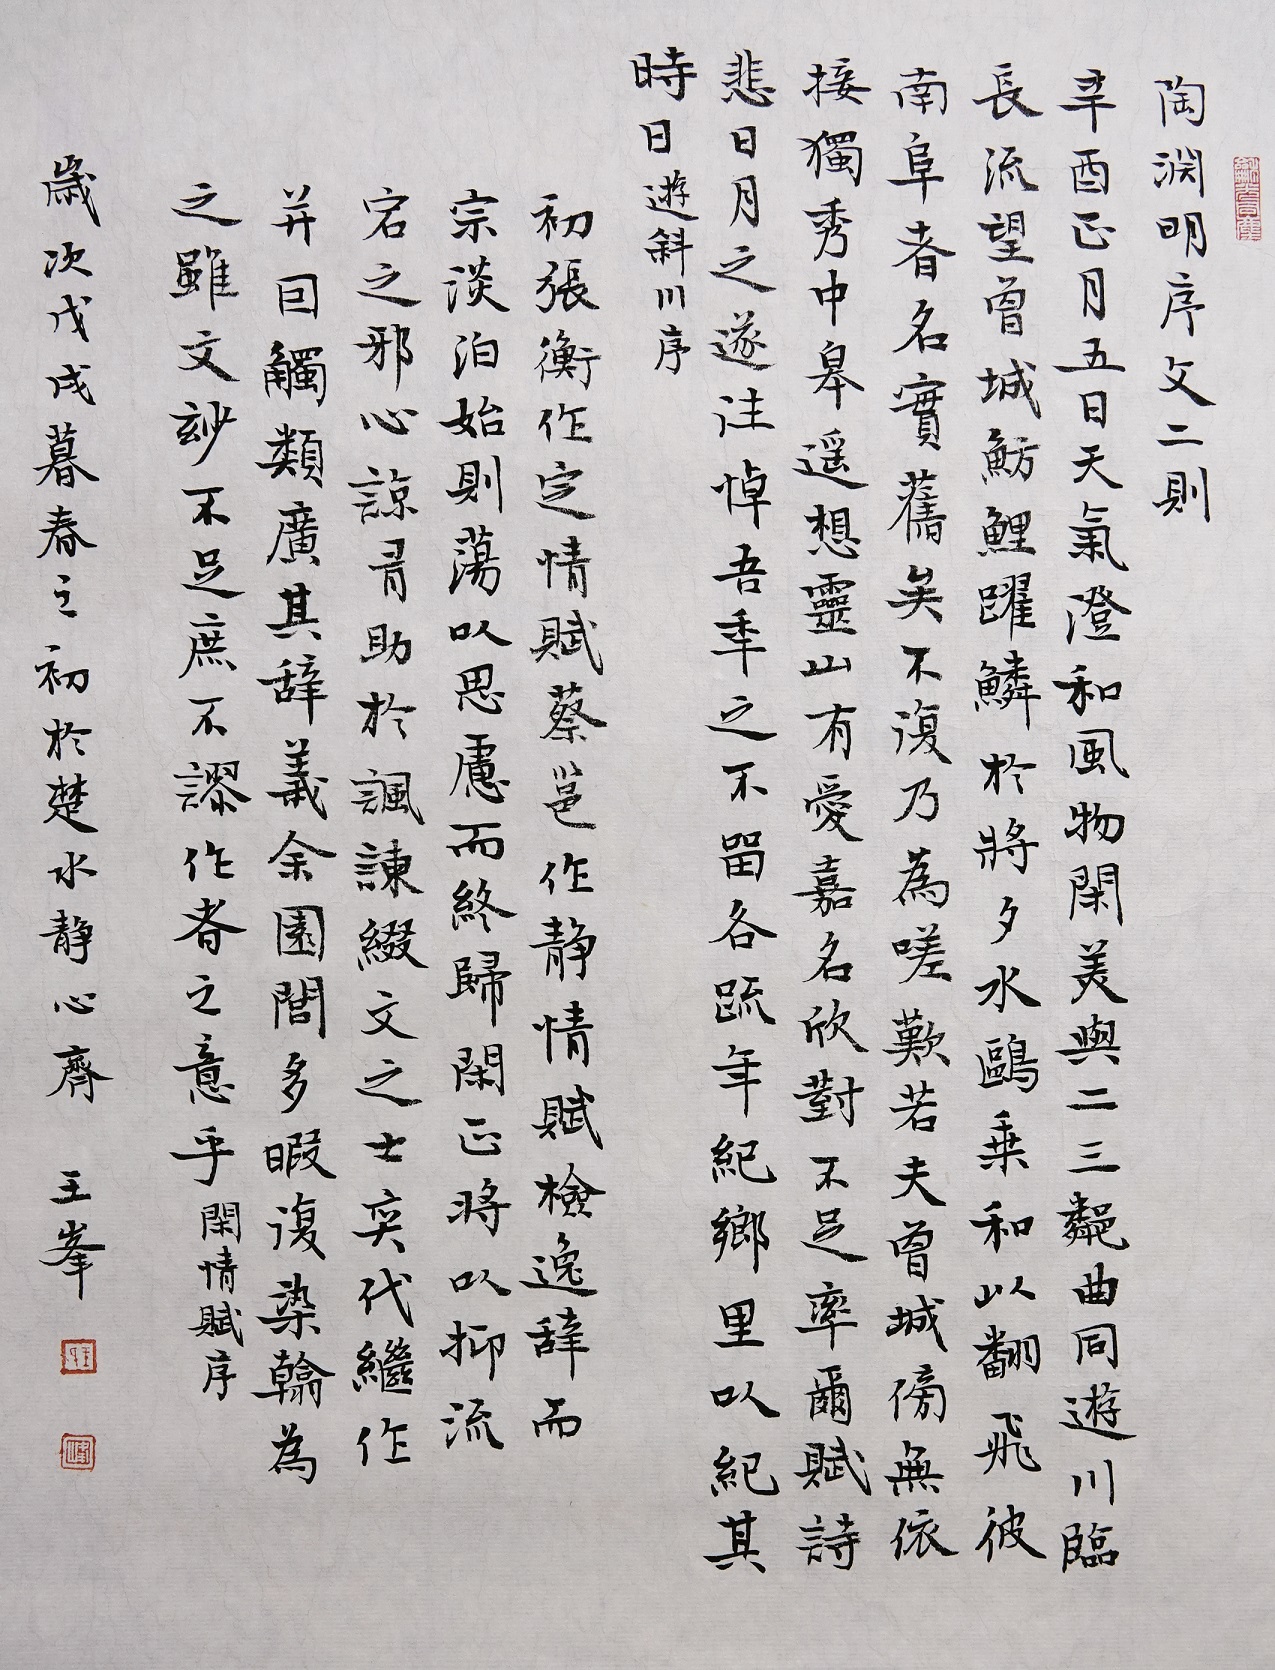 陶淵明序文二則
辛酉正月五日天氣澄和風物閑美與二三鄰曲同遊川臨
長流望曾城魴鯉躍鱗於將夕水鷗乗和以翻飛彼
南阜者名實舊矣不復乃為嗟歎若夫曾城傍無依
接獨秀中皋遥想靈山有愛嘉名欣對不足率爾賦詩
悲日月之遂往悼吾年之不留各疏年紀鄉里以紀其
時日遊斜川序
初張衡作定情賦蔡邕作静情賦檢逸辞而
宗淡泊始則蕩以思慮而終歸閑正將以抑流
宕之邪心諒有助於諷諫綴文之士奕代繼作
并曰觸類廣其辞義余園閭多暇復染翰為
之雖文妙不足庶不謬作者之意乎閑情賦序
歲次戊戌暮春之初於楚水静心齋 王峯